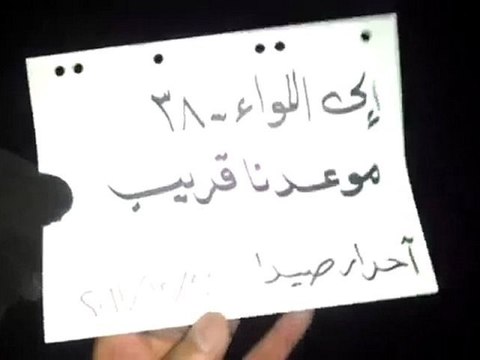 إلى اللواء - ٣٨
موعدنا قريب
آحرار صيدا